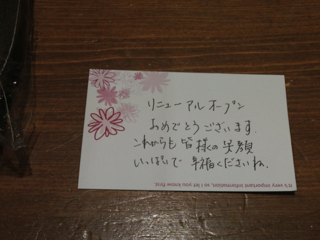 リニューアルオープン
おめでとうございます
これからも皆様の笑顔
いっぱいで
くださいね。
It's very important information, so I let you know first.